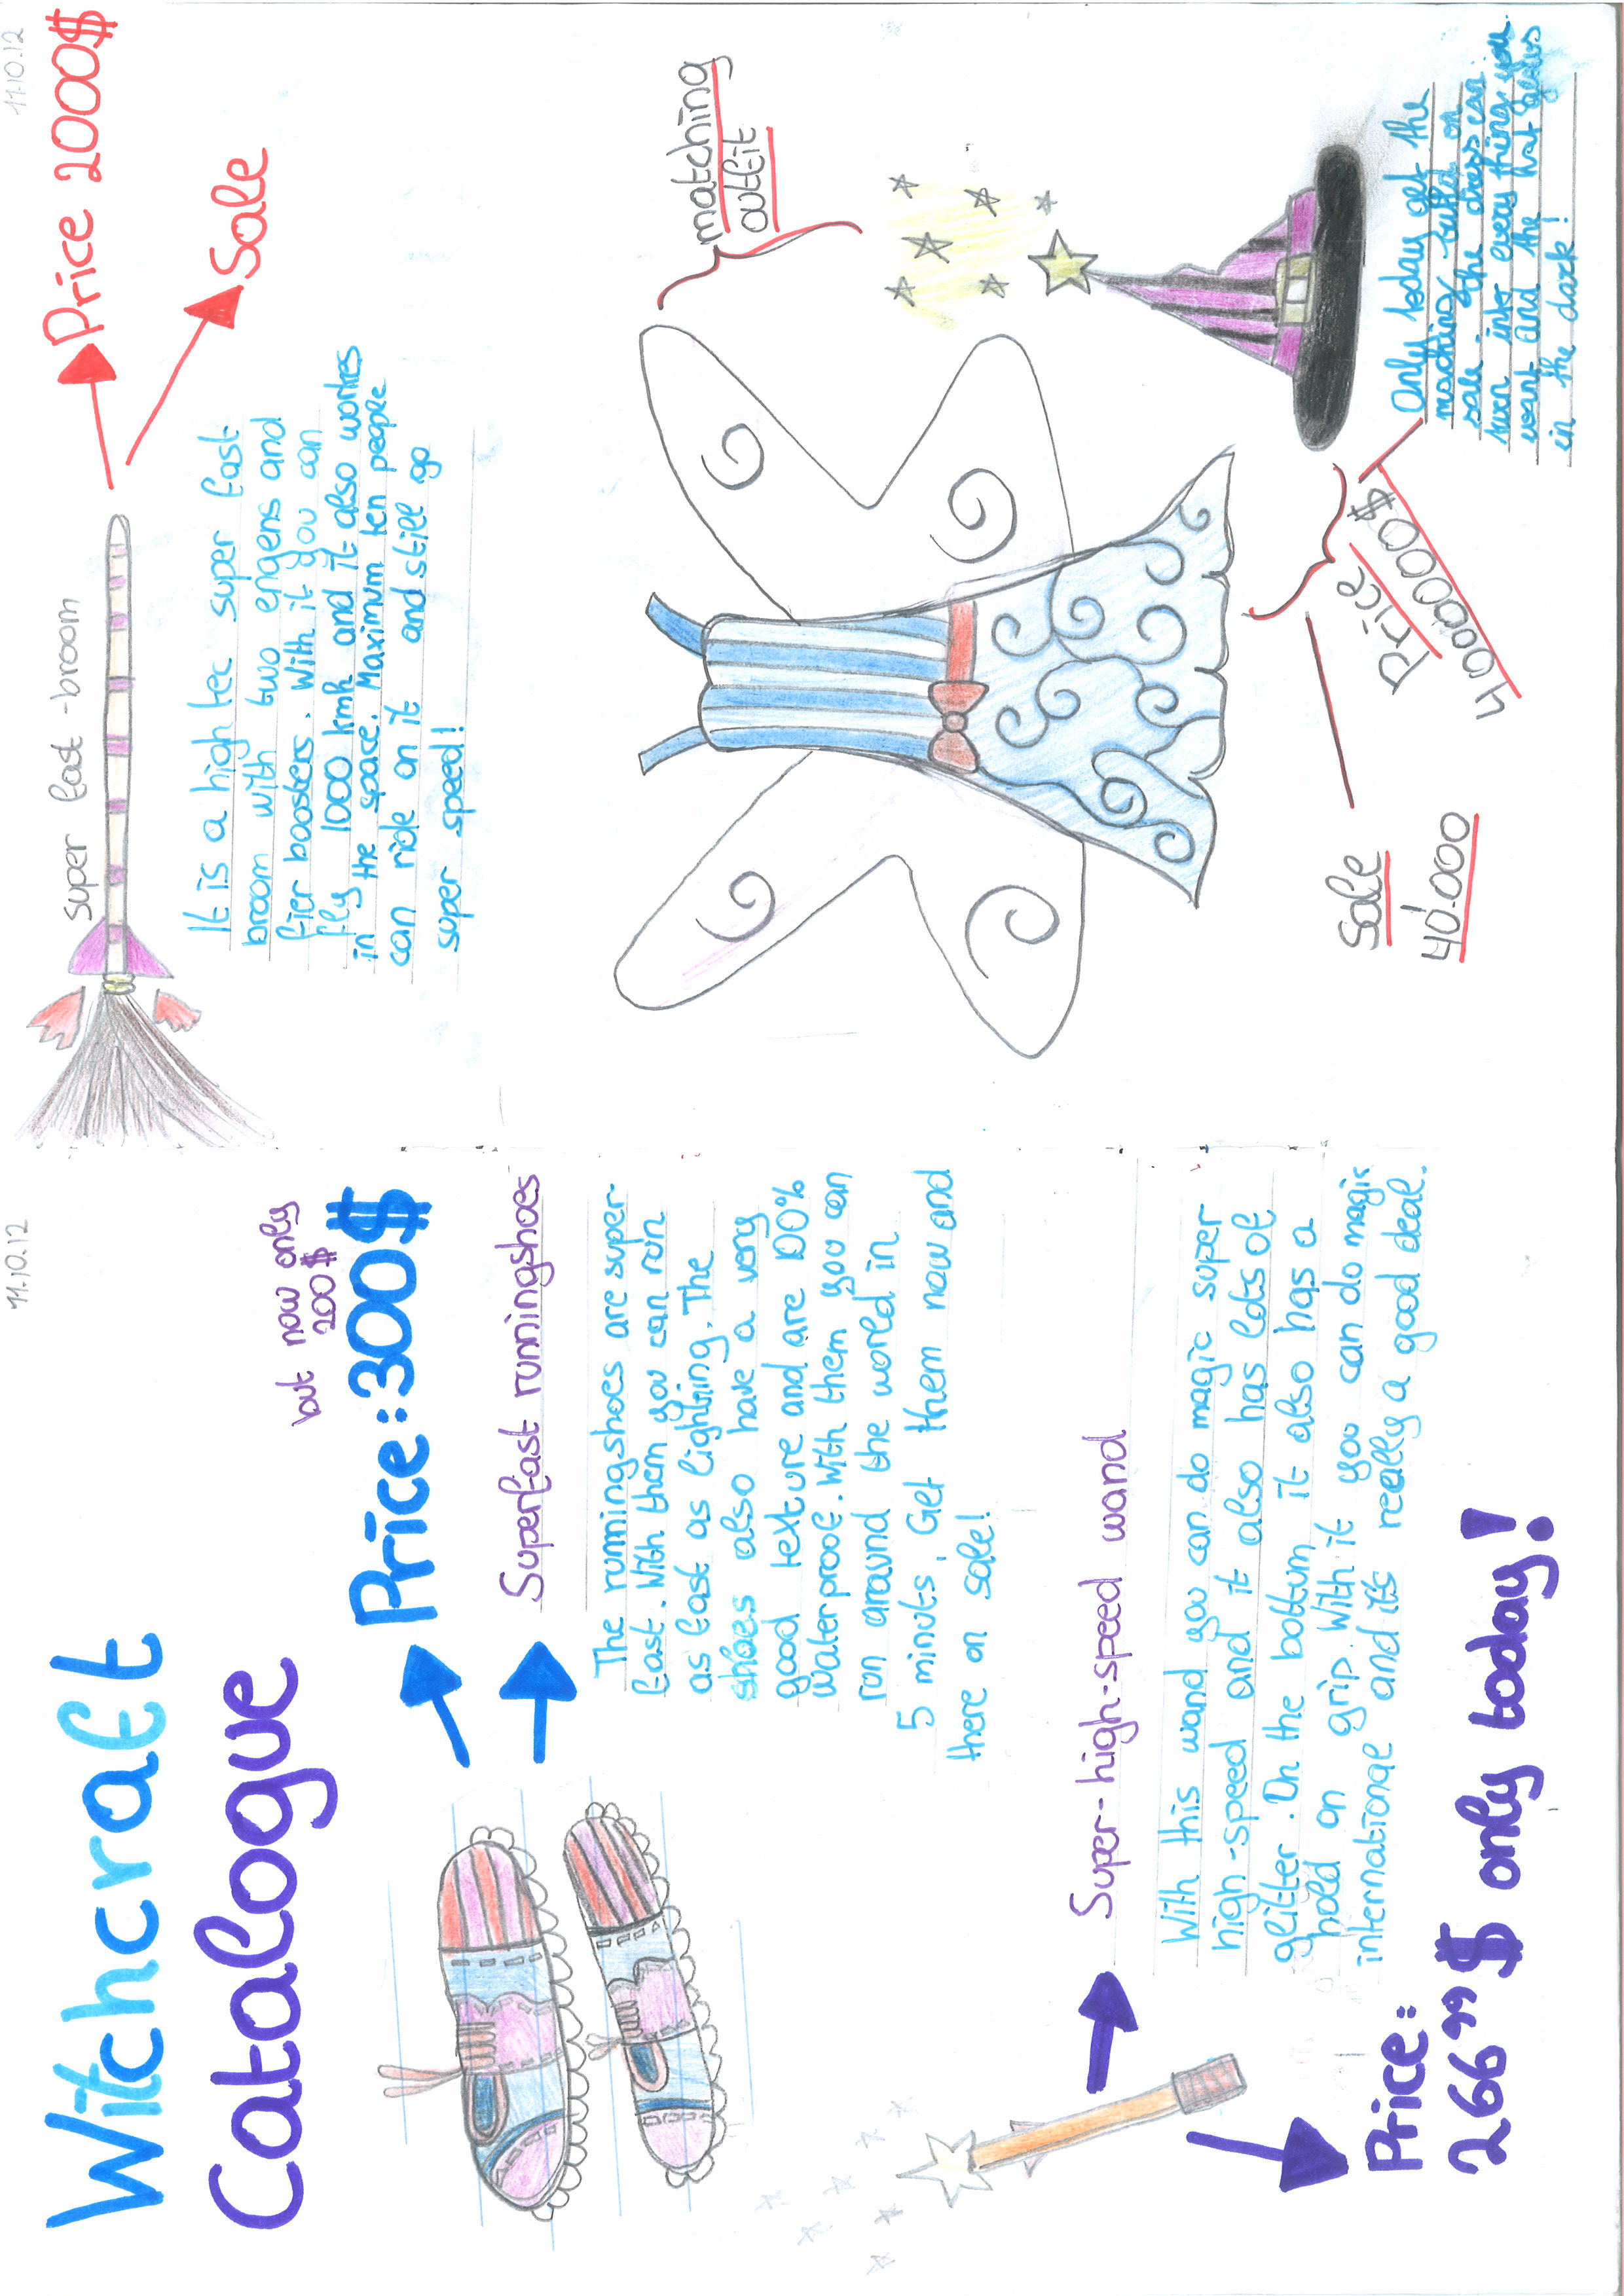 11.10.12
Witchcraft
Catalogue
but now only
200$
Price: 300$
Superfast runningshoes
The runningshoes are super-
fast. With them you can run
as fast as lighting. The
shoes also have a very
good texture and are 100%
waterproof. With them you can
run around the world in
5 minuts. Get them now and
there on sale!
Super-high-speed wand
With this wand you can do magic super
high-speed and it also has lots of
glitter. On the bottum it also has a
hold on grip. With it you can do magic
internationale and it's really a good deal.
Price:
266”$ only today!
11.10.12
super fast-broom
Price 2000$
Sale
It is a high tec super fast
broom with two engens and
fier boosters. With it you can
fly 1000 kmh and it also workes
in the space. Maximum ten people
can ride on it and still go
super speed!
matching
outfit
Sale
40'000
Price
4000000000$
Only today get the
maching outfit on
sale. The dress can
turn into every thing you
want and the hat glows
in the dark!